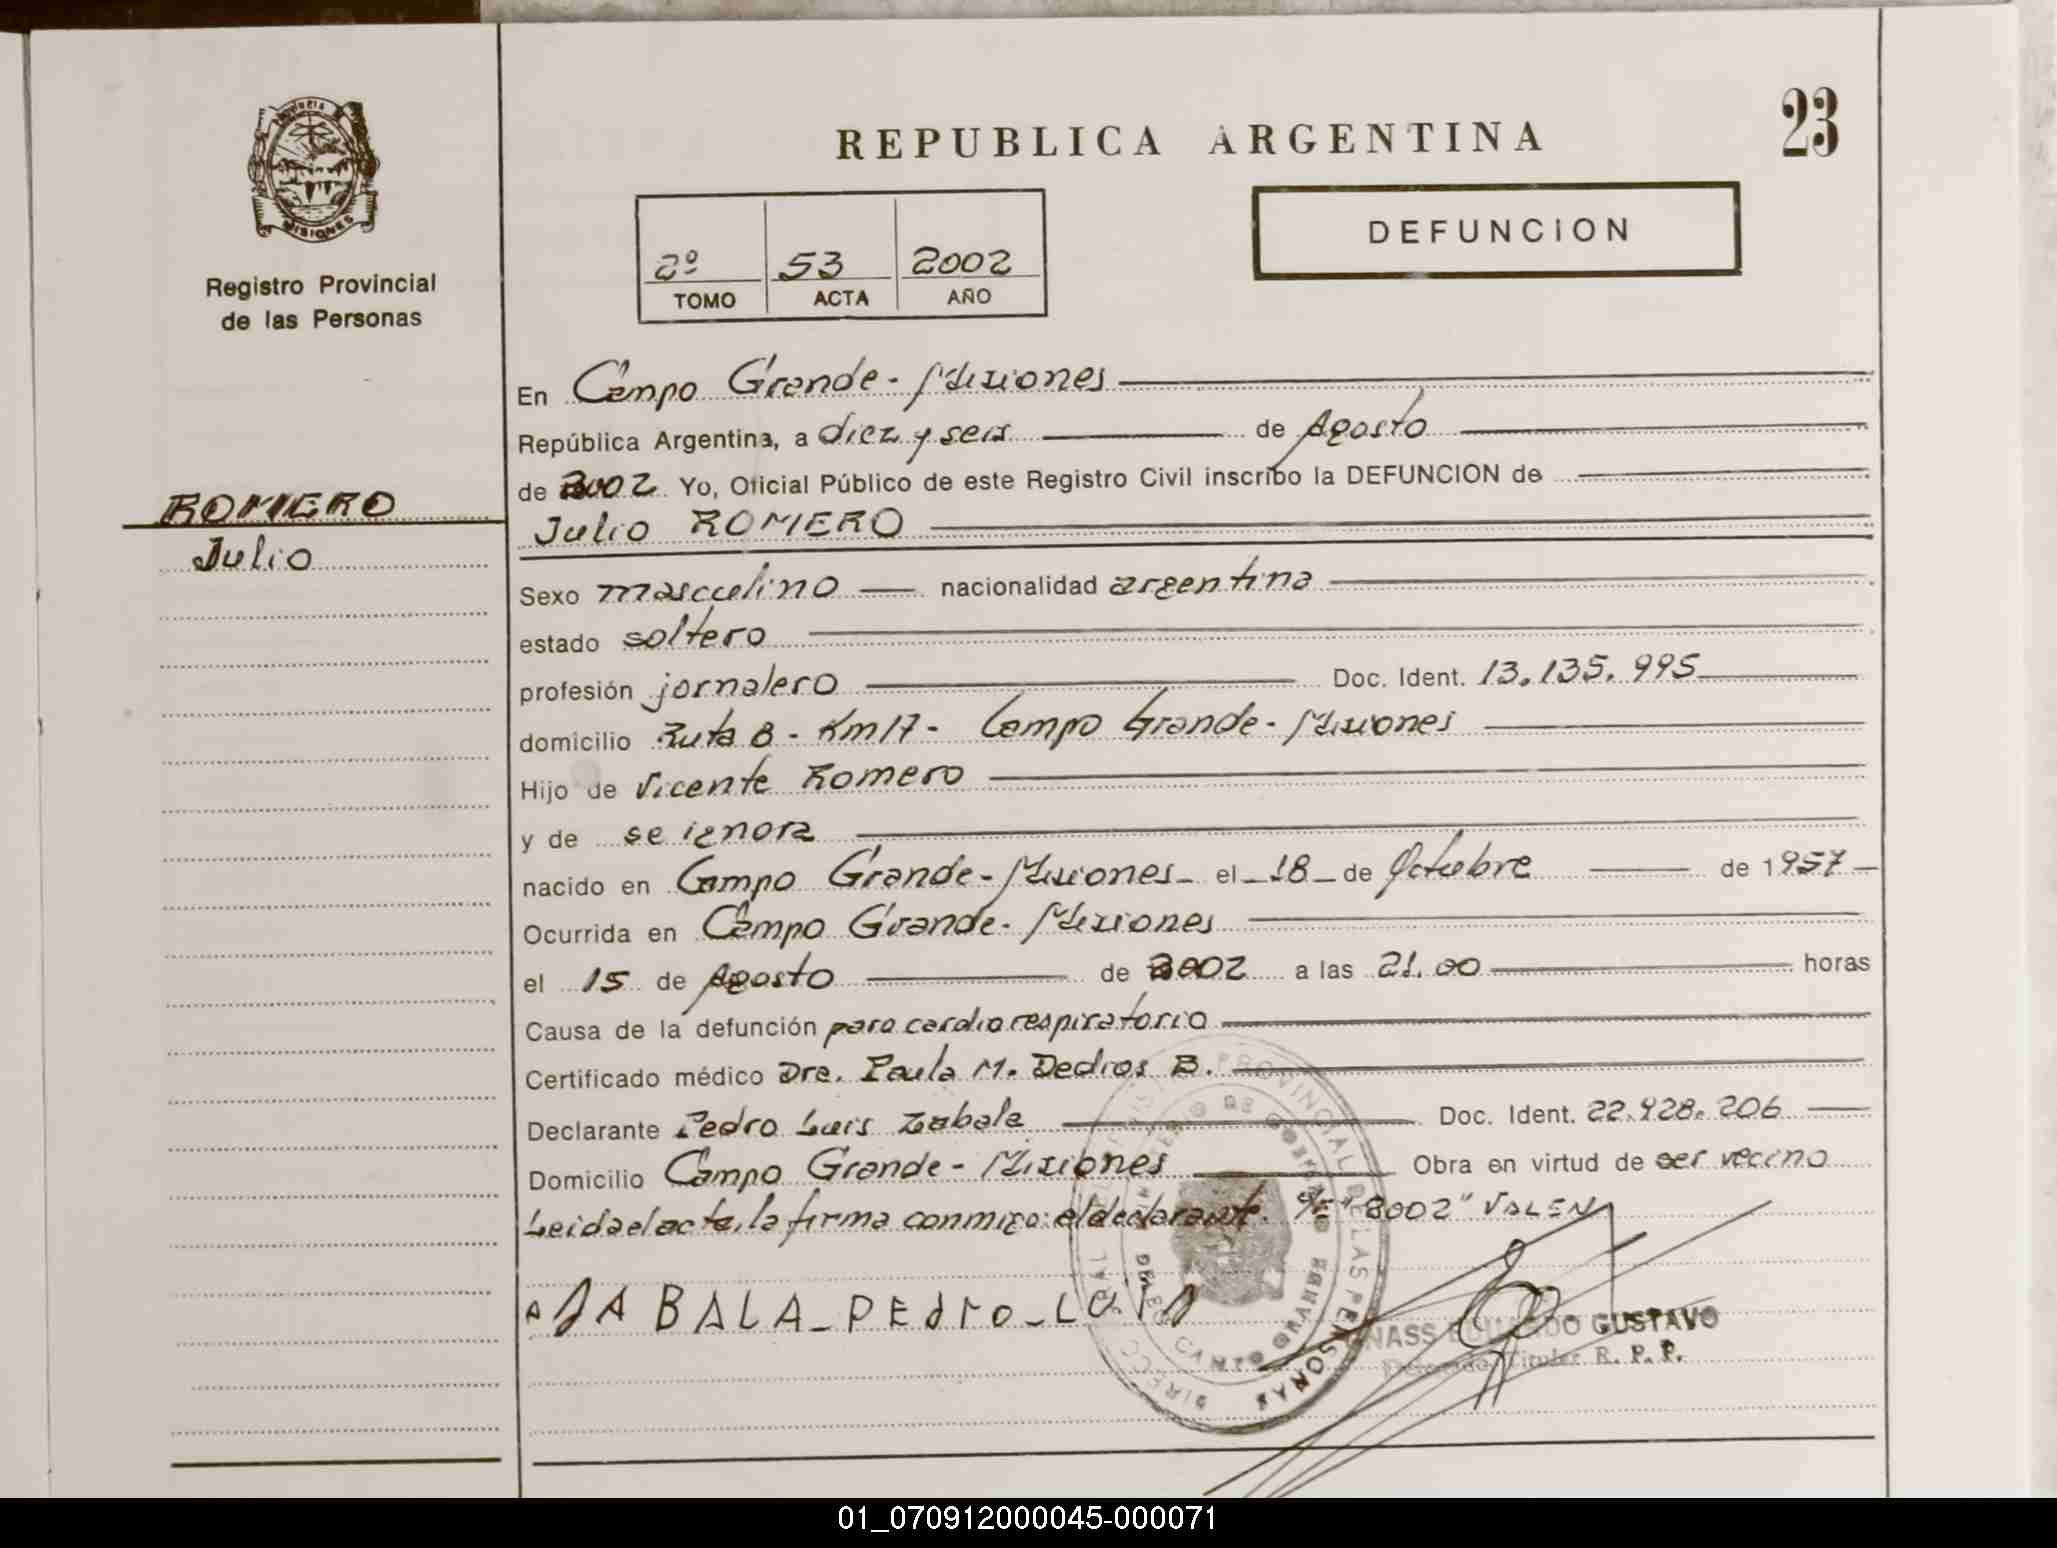 PROVINCIA DE
MISIONES
Registro Provincial
de las Personas
ROMERO
Julio
REPUBLICA ARGENTINA
23
2º 53 2002
TOMO ACTA AÑO
DEFUNCION
En Campo Grande - Misiones
República Argentina, a diez y seis de Agosto
de 2002 Yo, Oficial Público de este Registro Civil inscribo la DEFUNCION de
Julio ROMERO
Sexo masculino nacionalidad argentina
estado soltero
profesión jornalero Doc. Ident. 13.135.995
domicilio Ruta 8 - Km 17 - Campo Grande - Misiones
Hijo de Vicente Romero
y de se ignora
nacido en Campo Grande - Misiones - el - 18 - de Octubre de 1957
Ocurrida en Campo Grande - Misiones
el 15 de Agosto de 2002 a las 21.00 horas
Causa de la defunción paro cardiorespiratorio
Certificado médico Dra. Paula M. Dedios B.
Declarante Pedro Luis Zabala Doc. Ident. 22.928.206
Domicilio Campo Grande - Misiones Obra en virtud de ser vecino
Leida el acta, la firma conmigo: el declarante. "2002" VALEN
ZABALA - PEdro - LUIS
EDUARDO GUSTAVO
Titular R. P. P.
PROVINCIAL DE LAS PERSONAS
MINISTERIO DE GOBIERNO
01_070912000045-000071